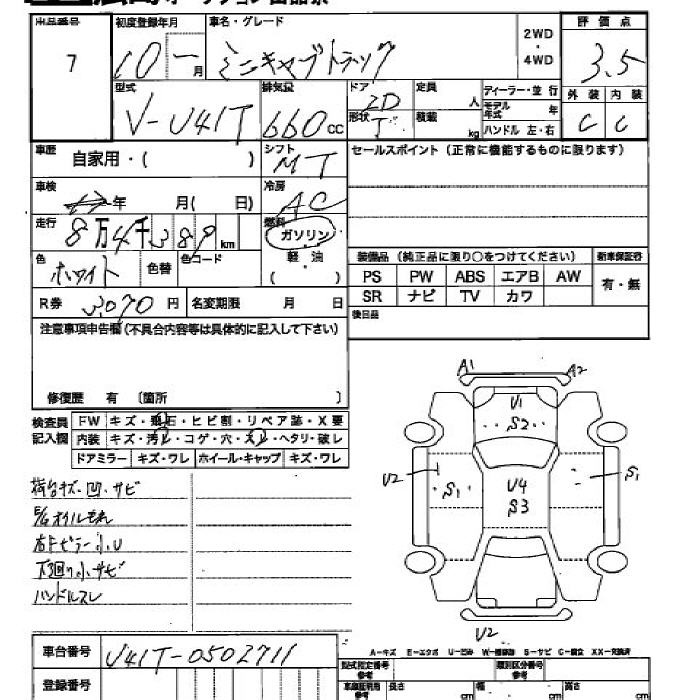 出品番号
7
初度登録年月
10 - 1 月
車名・グレード
ミニキャブトラック
2WD
・
4WD
評 価 点
3.5
外 装 内 装
C C
型式
V-U41T
排気量
660 cc
ドア 2D
形状 T
定員 人
積載 kg
ディーラー・並 行
モデル年式 年
ハンドル 左・右
車歴 自家用・( )
シフト MT
セールスポイント (正常に機能するものに限ります)
車検 年 月( 日)
冷房 AC
走行 8万4千389 km
燃料
ガソリン
軽 油
( )
色 ホワイト 色替 色コード
装備品 (純正品に限り○をつけてください) 新車保証書
PS PW ABS エアB AW 有・無
SR ナビ TV カワ
後日品
R券 3,070 円 名変期限 月 日
注意事項申告欄(不具合内容等は具体的に記入して下さい)
修復歴 有 〔箇所 〕
検査員記入欄
FW キズ・飛石・ヒビ割・リペア跡・X要
内装 キズ・汚レ・コゲ・穴・スレ・ヘタリ・破レ
ドアミラー キズ・ワレ ホイール・キャップ キズ・ワレ
荷台キズ・凹・サビ
E/Gオイルもれ
右Fピラー小U
下廻り小サビ
ハンドルスレ
A1 A2
U1
S2
U2 S1 U4 S1
S3
U2
A-キズ E-エクボ U-凹み W-補修跡 S-サビ C-腐食 XX-交換済
車台番号 U41T-0502711
登録番号
型式指定番号 参考
類別区分番号 参考
車庫証明用 参考
長さ cm 幅 cm 高さ cm